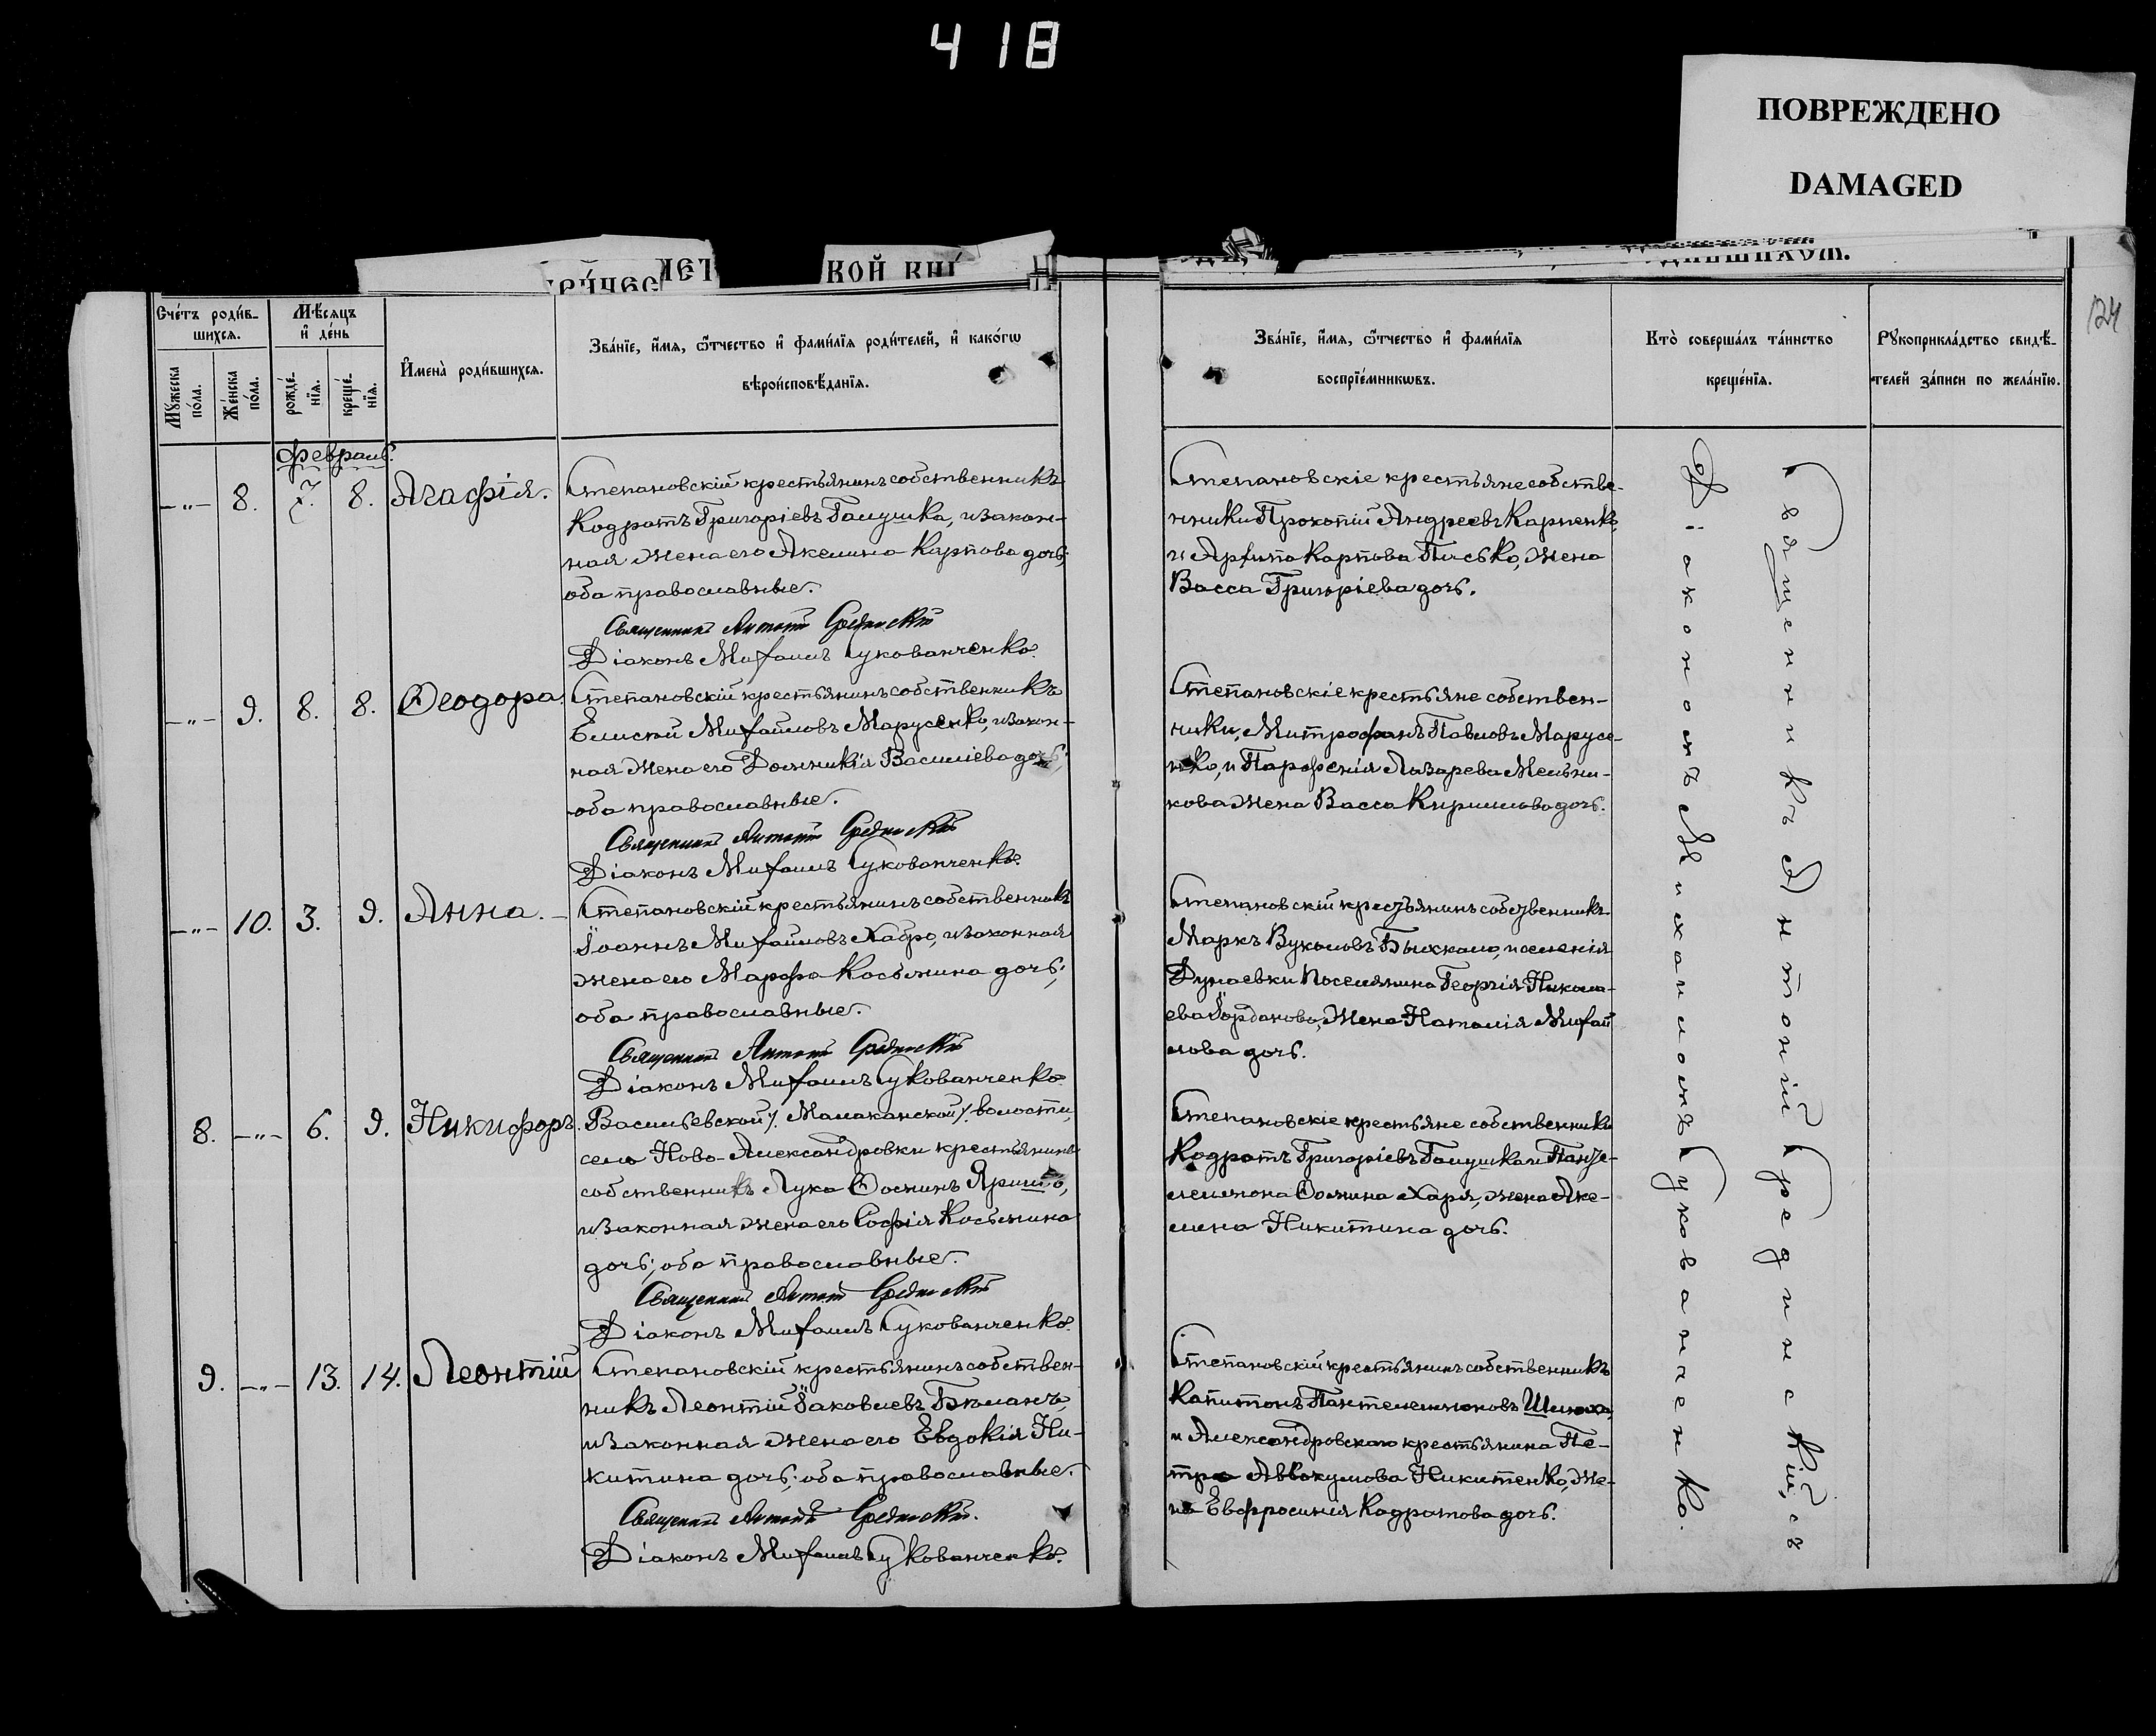 418
ПОВРЕЖДЕНО
DAMAGED
КОЙ КНІ
124
Счétъ родив-
шихся.
Мѣсяцъ
и день
Мужеска
пола.
Женска
пола.
рожде-
нія.
креще-
нія.
Имена родившихся.
Званіе, имя, отчество и фамилія родителей, и какого
вѣроисповѣданія.
Званіе, имя, отчество и фамилія
воспріемниковъ.
Кто совершалъ таинство
крещенія.
Рукоприкладство свидѣ-
телей записи по желанію.
Февраль.
-"- 8. 7. 8. Агафія.
Степановскій крестьянинъ собственникъ
Кодратъ Григоріевъ Галушка, и закон-
ная жена его Акелина Карпова дочь;
оба православные.
Священникъ Антоній Срединскій
Діаконъ Михаилъ Сукованченко.
Степановскіе крестьяне собстве-
нники Прокопій Андреевъ Карпенко,
и Архипа Карпова Пасько, жена
Васса Григоріева дочь.
-"- 9. 8. 8. Ѳеодора.
Степановскій крестьянинъ собственникъ
Елисей Михайловъ Марусенко, и закон-
ная жена его Домникія Василіева дочь;
оба православные.
Священникъ Антоній Срединскій
Діаконъ Михаилъ Сукованченко.
Степановскіе крестьяне собствен-
ники, Митрофанъ Павловъ Марусе-
нко, и Лазарева Мельни-
кова жена Васса Кириллова дочь.
-"- 10. 3. 9. Анна.
Степановскій крестьянинъ собственникъ
Іоаннъ Михайловъ Хабро, и законная
жена его Марфа Косьмина дочь;
оба православные.
Священникъ Антоній Срединскій
Діаконъ Михаилъ Сукованченко.
Степановскій крестьянинъ собственникъ
Маркъ Вуколовъ и селенія
Дунаевки поселянина Георгія Никола-
ева Іорданова, жена Наталія Михай
лова дочь.
8. -"- 6. 9. Никифоръ.
Васильевской /. Малаканской /. волости,
села Ново-Александровки крестьянинъ
собственникъ Лука Ѳоминъ
и законная жена его Софія Косьмина
дочь; оба православные.
Священникъ Антоній Срединскій
Діаконъ Михаилъ Сукованченко.
Степановскіе крестьяне собственники
Кодратъ Григоріевъ Галушка и Панте-
леимона Ѳомина Харя, жена Аке-
лина Никитина дочь.
9. -"- 13. 14. Леонтій
Степановскій крестьянинъ собствен-
никъ Леонтій Іаковлевъ
и законная жена его Евдокія Ни-
китина дочь; оба православные.
Священникъ Антоній Срединскій.
Діаконъ Михаилъ Сукованченко.
Степановскій крестьянинъ собственникъ
Капитонъ Пантелеимоновъ
и Александровскаго крестьянина Пе-
тра Аввакумова Никитенко, же-
на Евфросинія Кодратова дочь.
Священникъ Антоній Срединскій, съ
Діакономъ Михаиломъ Сукованченко.